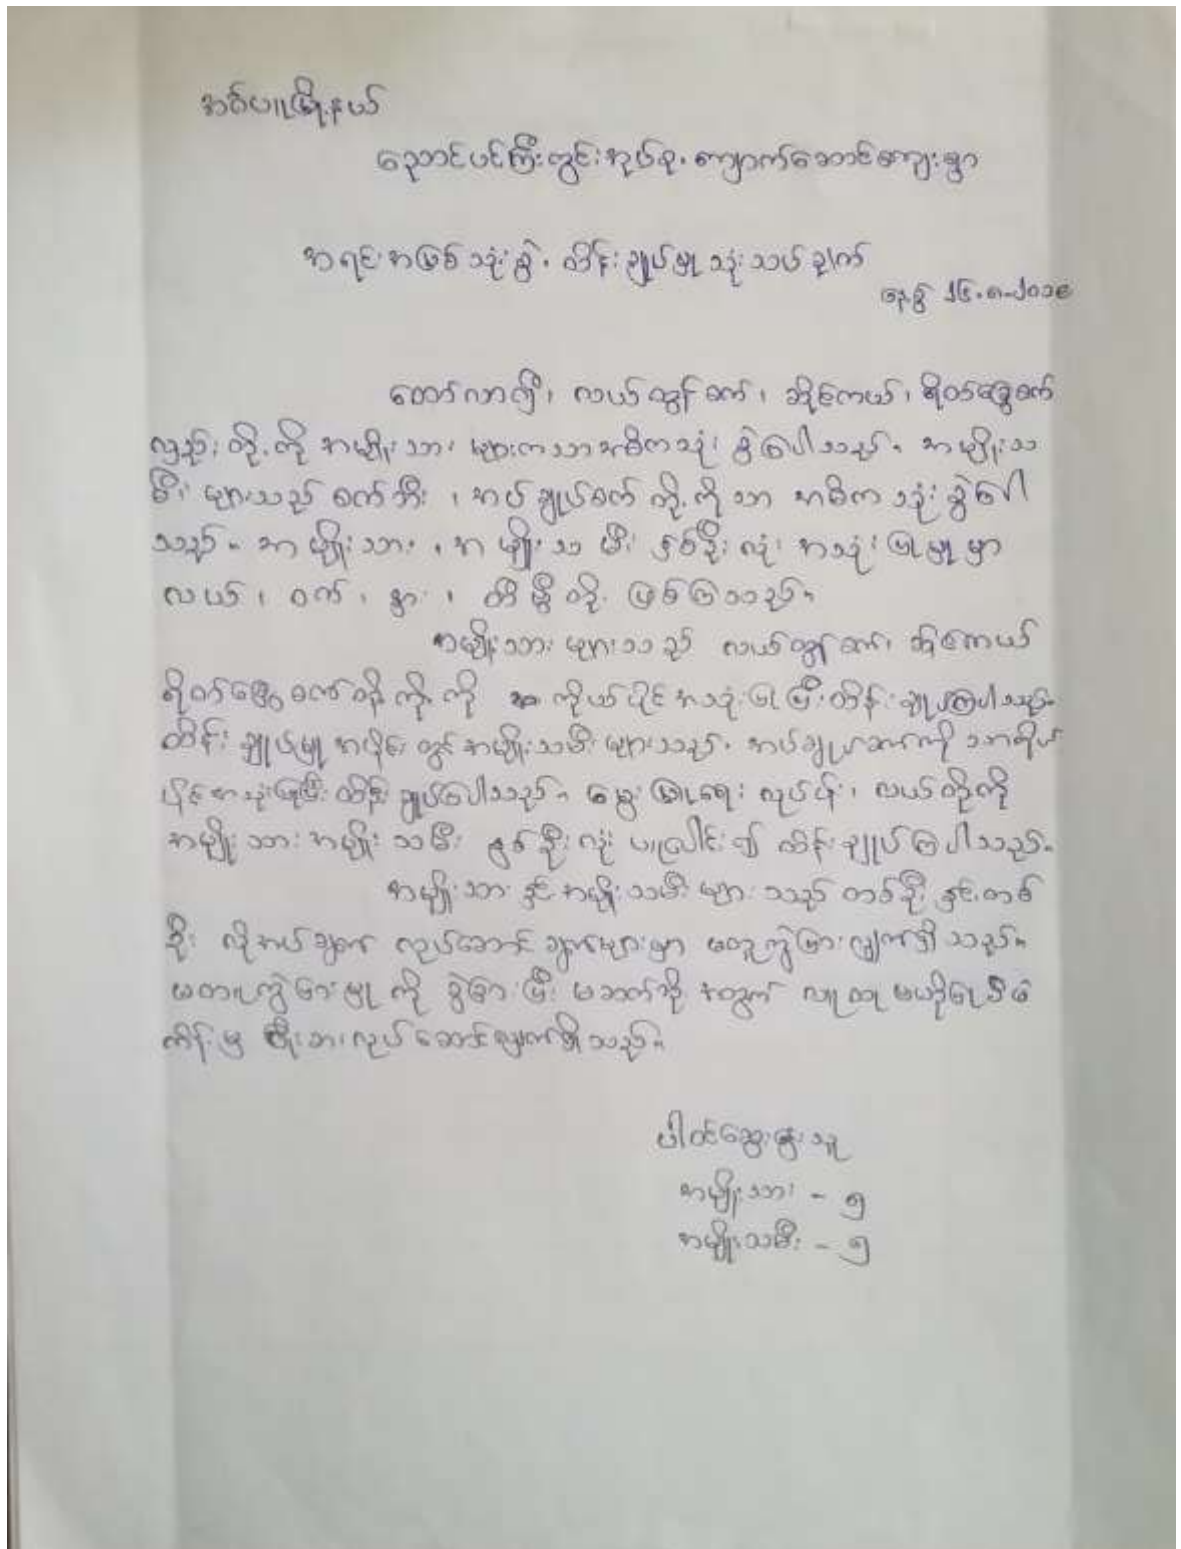 အင်းပျူမြို့နယ်
ညောင်ပင်ကြီးတွင်းအုပ်စု၊ ကျောက်ဆောင်ကျေးရွာ
အရင်းအမြစ်သုံးစွဲ၊ ထိန်းချုပ်မှုသုံးသပ်ချက်
နေ့စွဲ ၂၆.၈.၂၀၁၉
ထော်လာဂျီ၊ လယ်ထွန်စက်၊ ဆိုင်ကယ်၊ ရိတ်ခြွေစက်
လှည်းတို့ကို အမျိုးသားများကသာအဓိကသုံးစွဲပေါသည်။ အမျိုးသ
မီးများသည် စက်ဘီး၊ အပ်ချုပ်စက်တို့ကိုသာ အဓိကသုံးစွဲပေါ
သည်။ အမျိုးသား၊ အမျိုးသမီး နှစ်ဦးလုံး အသုံးပြုမှုမှာ
လယ်၊ ဝက်၊ နွား၊ တီဗွီတို့ဖြစ်ကြသည်။
အမျိုးသားများသည် လယ်ထွန်စက်၊ ဆိုင်ကယ်
ရိတ်ခြွေစက်တို့ကို ကိုယ်ပိုင်အသုံးပြုပြီးထိန်းချုပ်ကြပါသည်။
ထိန်းချုပ်မှုအပိုင်းတွင် အမျိုးသမီးများသည် အပ်ချုပ်စက်ကိုသာကိုယ်
ပိုင်အသုံးပြုပြီးထိန်းချုပ်ပေါသည်။ မွေးမြူရေးလုပ်ငန်း၊ လယ်တို့ကို
အမျိုးသားအမျိုးသမီး နှစ်ဦးလုံး ပူးပေါင်း၍ ထိန်းချုပ်ကြပါသည်။
အမျိုးသားနှင့်အမျိုးသမီးများသည် တစ်ဦးနှင့်တစ်
ဦး လိုအပ်ချက် လုပ်ဆောင်ချက်များမှာ မတူကွဲပြားလျှက်ရှိသည်။
မတူကွဲပြားမှုကို ခွဲခြားပြီး မဆက်ဆံ
ထိန်းမှ ဦးစားလုပ်ဆောင်လျှက်ရှိသည်။
ပါဝင်ဆွေးနွေးသူ
အမျိုးသား - ၅
အမျိုးသမီး - ၅